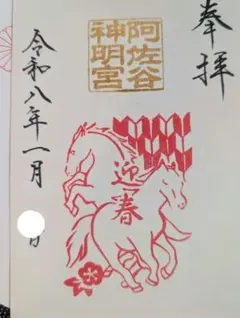 奉拝
阿佐谷
神明宮
迎春
令和八年一月
日